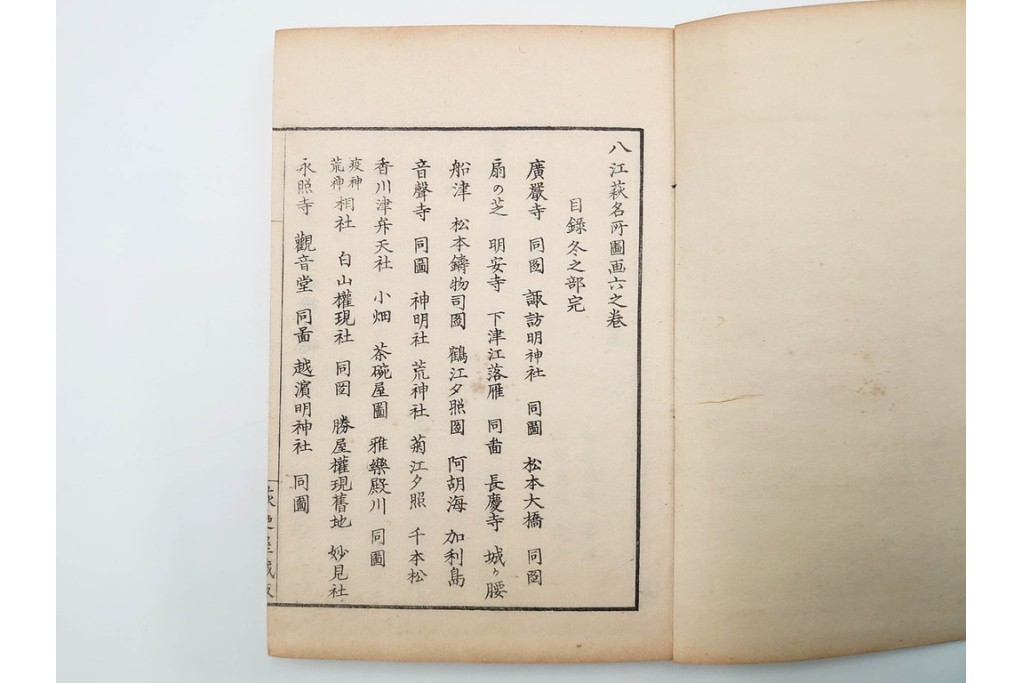 八江萩名所圖画六之卷
目錄冬之部完
廣嚴寺 同圖 諏訪明神社 同圖 松本大橋 同圖
扇の芝 明安寺 下津江落雁 同啚 長慶寺 城ヶ腰
船津 松本鑄物司圖 鶴江夕照圖 阿胡海 加利島
音聲寺 同圖 神明社 荒神社 菊江夕照 千本松
香川津弁天社 小畑 茶碗屋圖 雅樂殿川 同圖
疫神荒神相社 白山權現社 同圖 勝屋權現舊地 妙見社
永照寺 觀音堂 同啚 越濱明神社 同圖